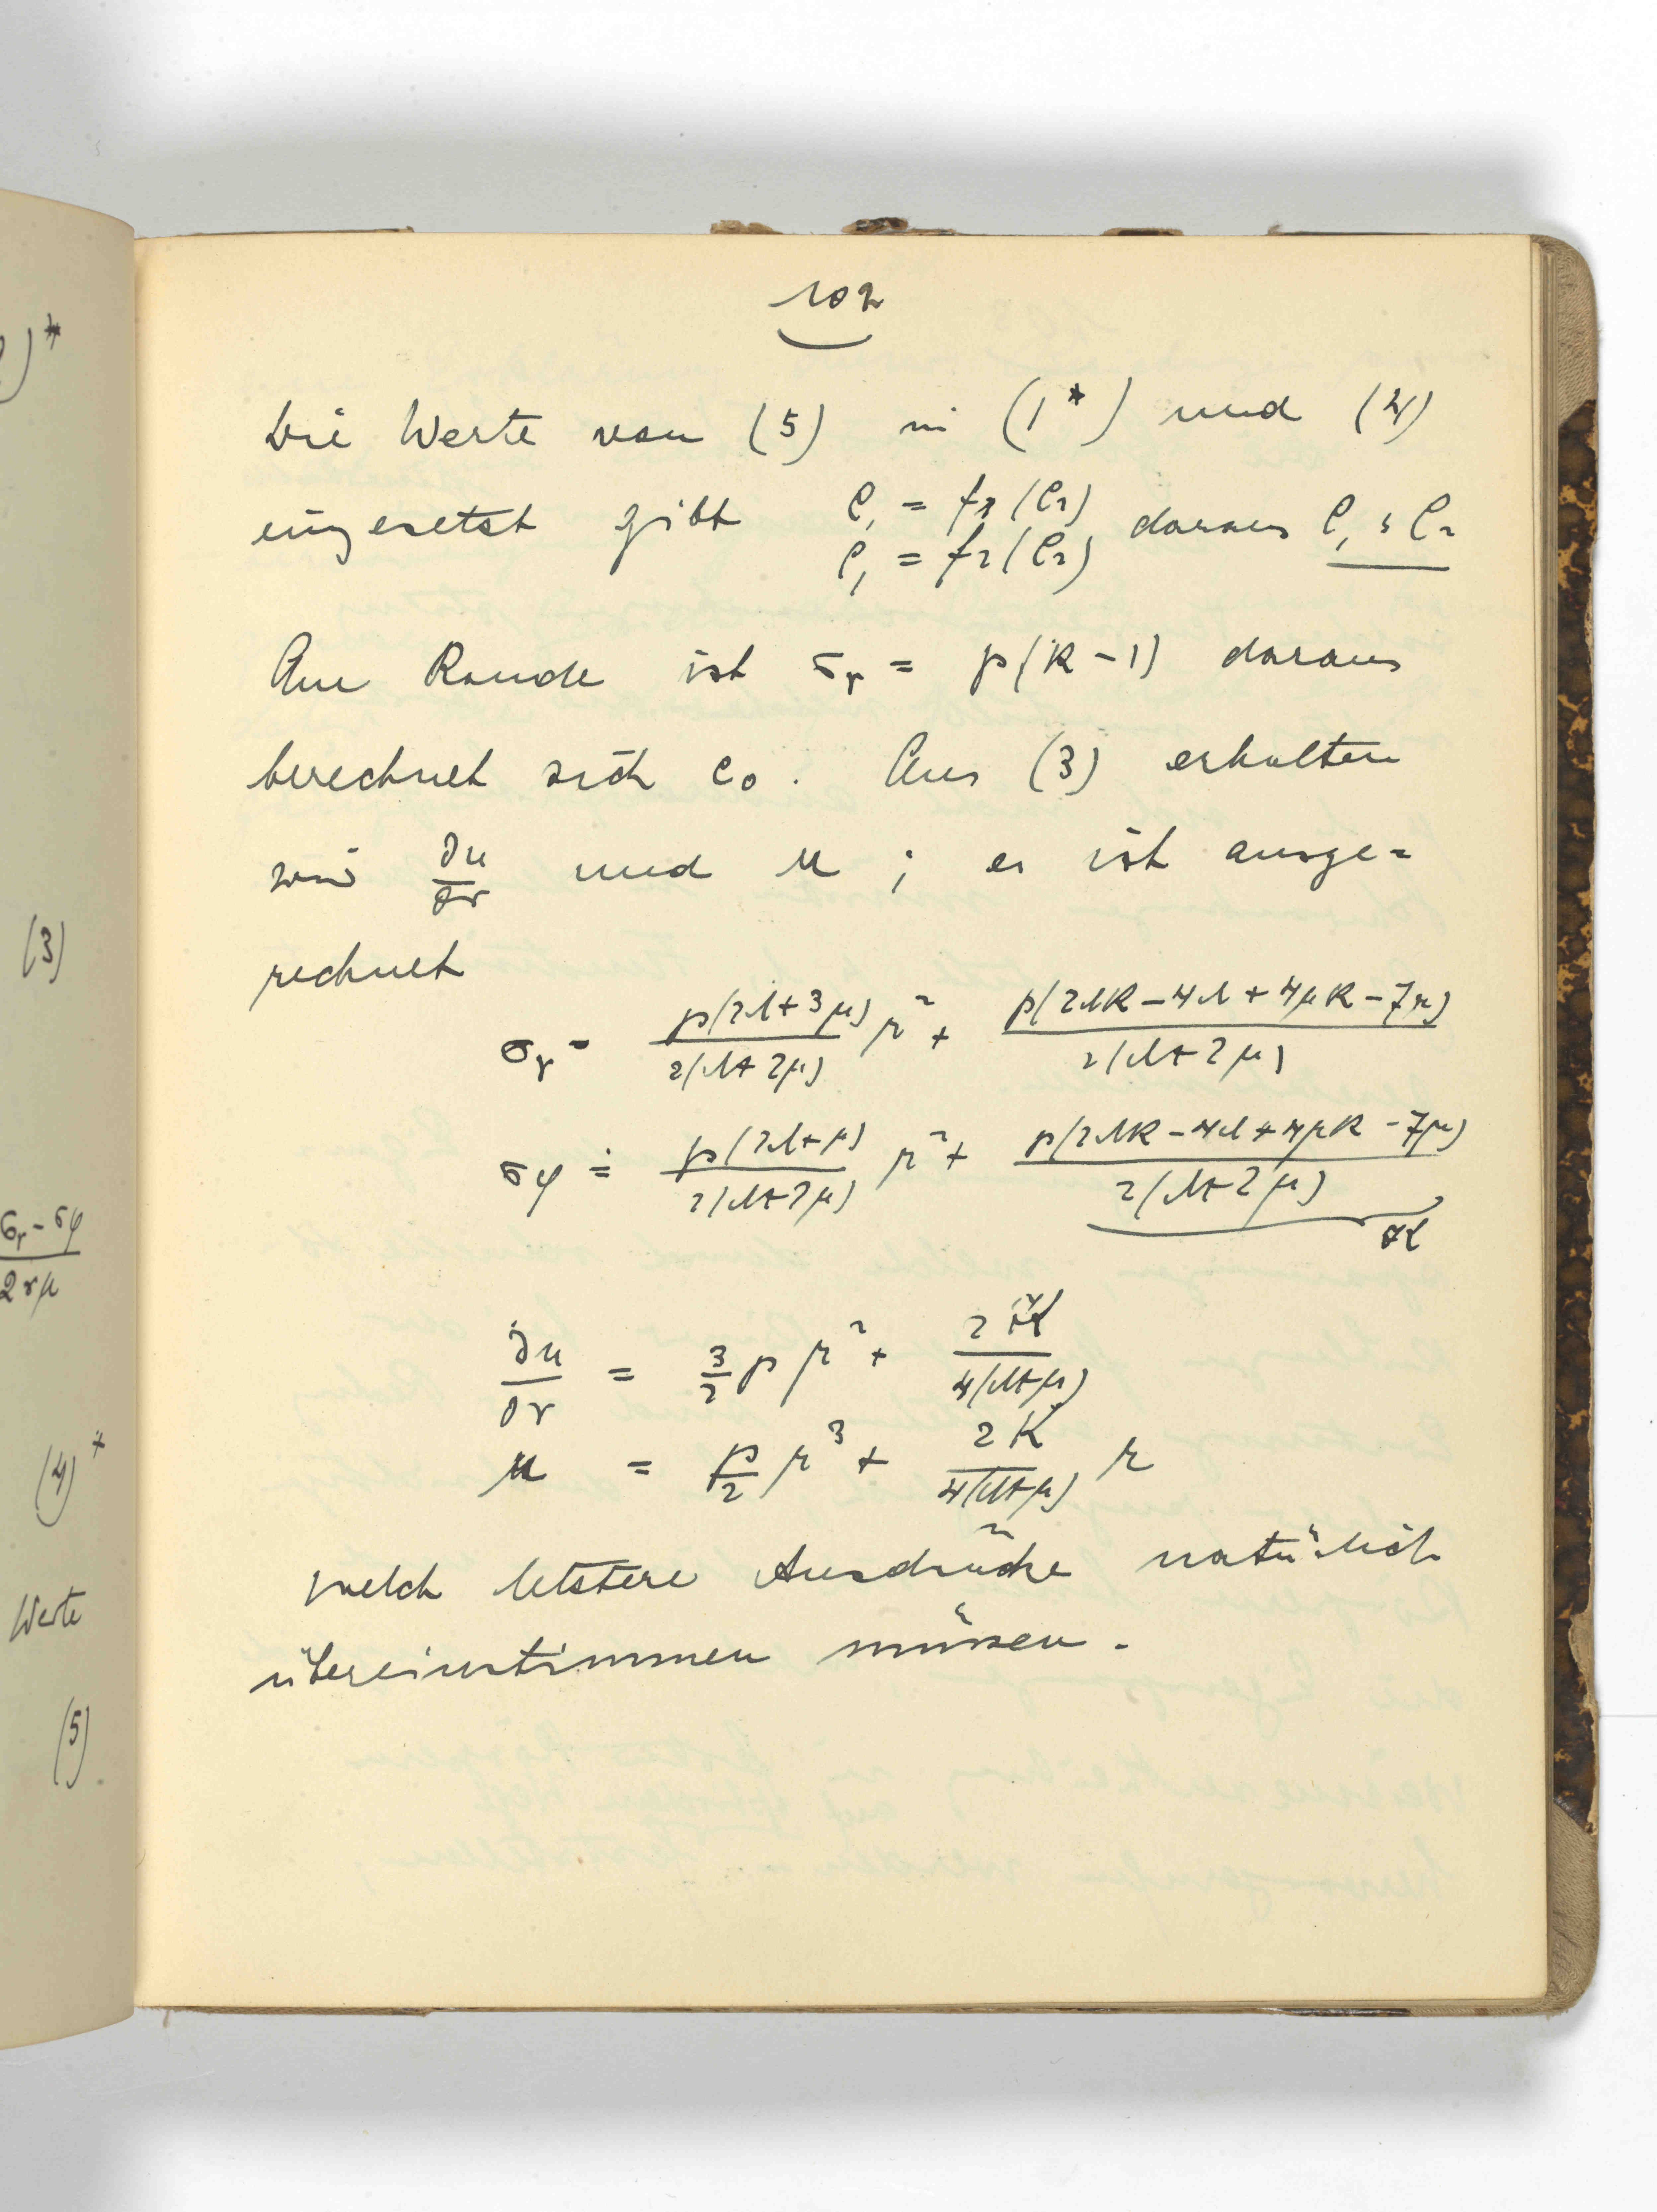 )*
(3)
σᵣ - σφ
2rμ
(4)*
Werte
(5)
102
Die Werte von (5) in (1*) und (4)
eingesetzt gibt C₁ = f₁(C₂) daraus C₁, C₂
C₁ = f₂(C₂)
Am Rande ist σᵣ = p(K-1) daraus
berechnet sich C₀. Aus (3) erhalten
wir ∂u/∂r und u ; es ist ausge=
rechnet
σᵣ = p(2λ+3μ)/2(λ+2μ) r² + p(2λK-4λ+4μK-7μ)/2(λ+2μ)
σφ = p(2λ+μ)/2(λ+2μ) r² + p(2λK-4λ+4μK-7μ)/2(λ+2μ)
∂u/∂r = 3/2 p r² + 2K/4(λ+μ)
u = p/2 r³ + 2K/4(λ+μ) r
welch letztere Ausdrücke natürlich
übereinstimmen müssen.